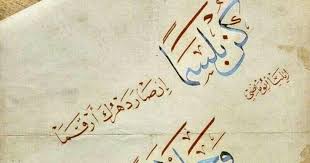 كن بلسما
إن صار دهرك أرقما
إيليا أبو ماضي